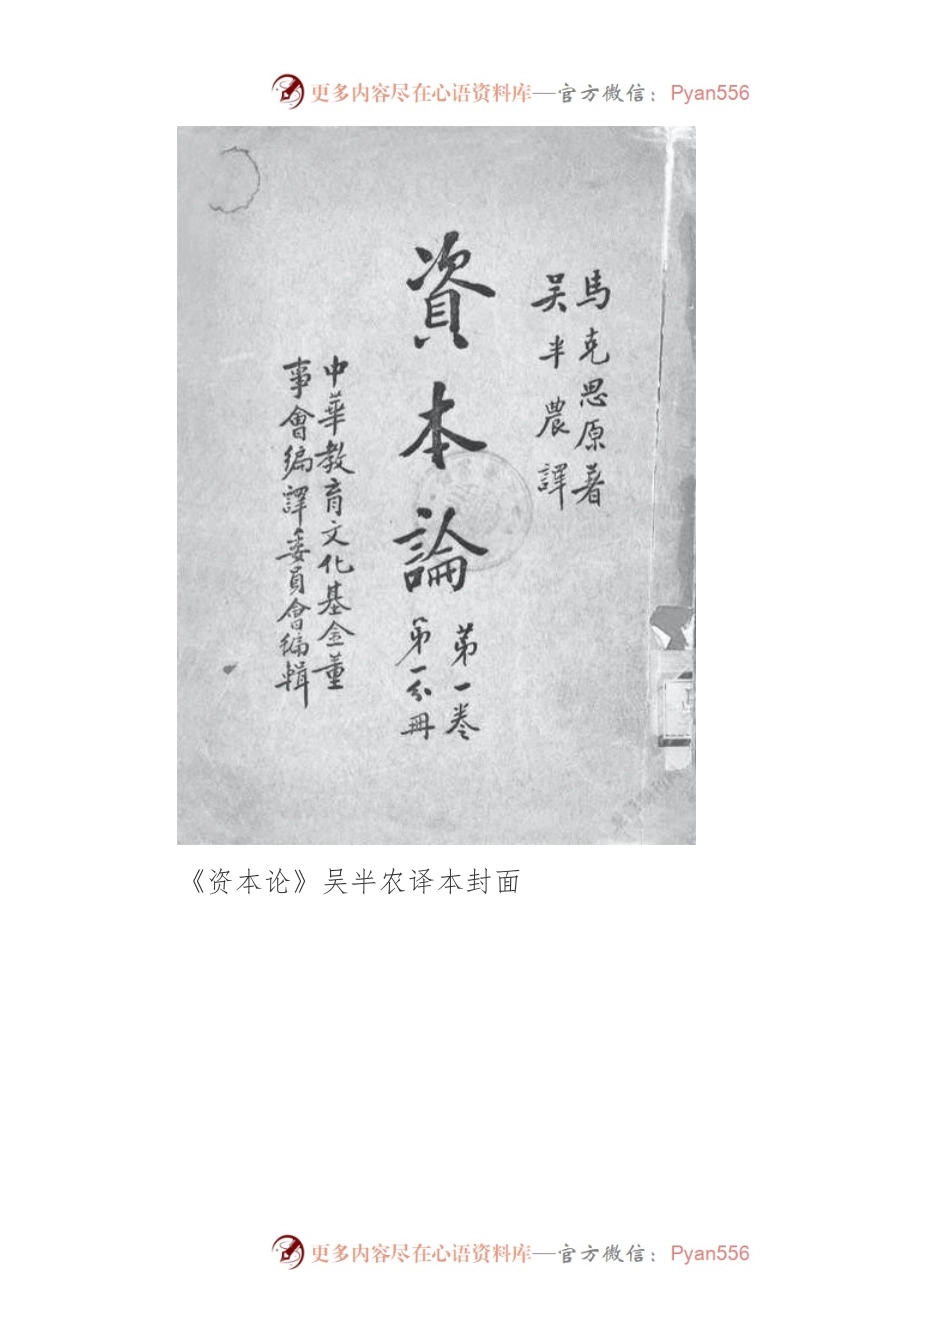 更多内容尽在心语资料库—官方微信：Pyan556
馬克思原著
吴半農譯
資本論
第一卷
第一分冊
中華教育文化基金董
事會編譯委員會編輯
《资本论》吴半农译本封面
更多内容尽在心语资料库—官方微信：Pyan556